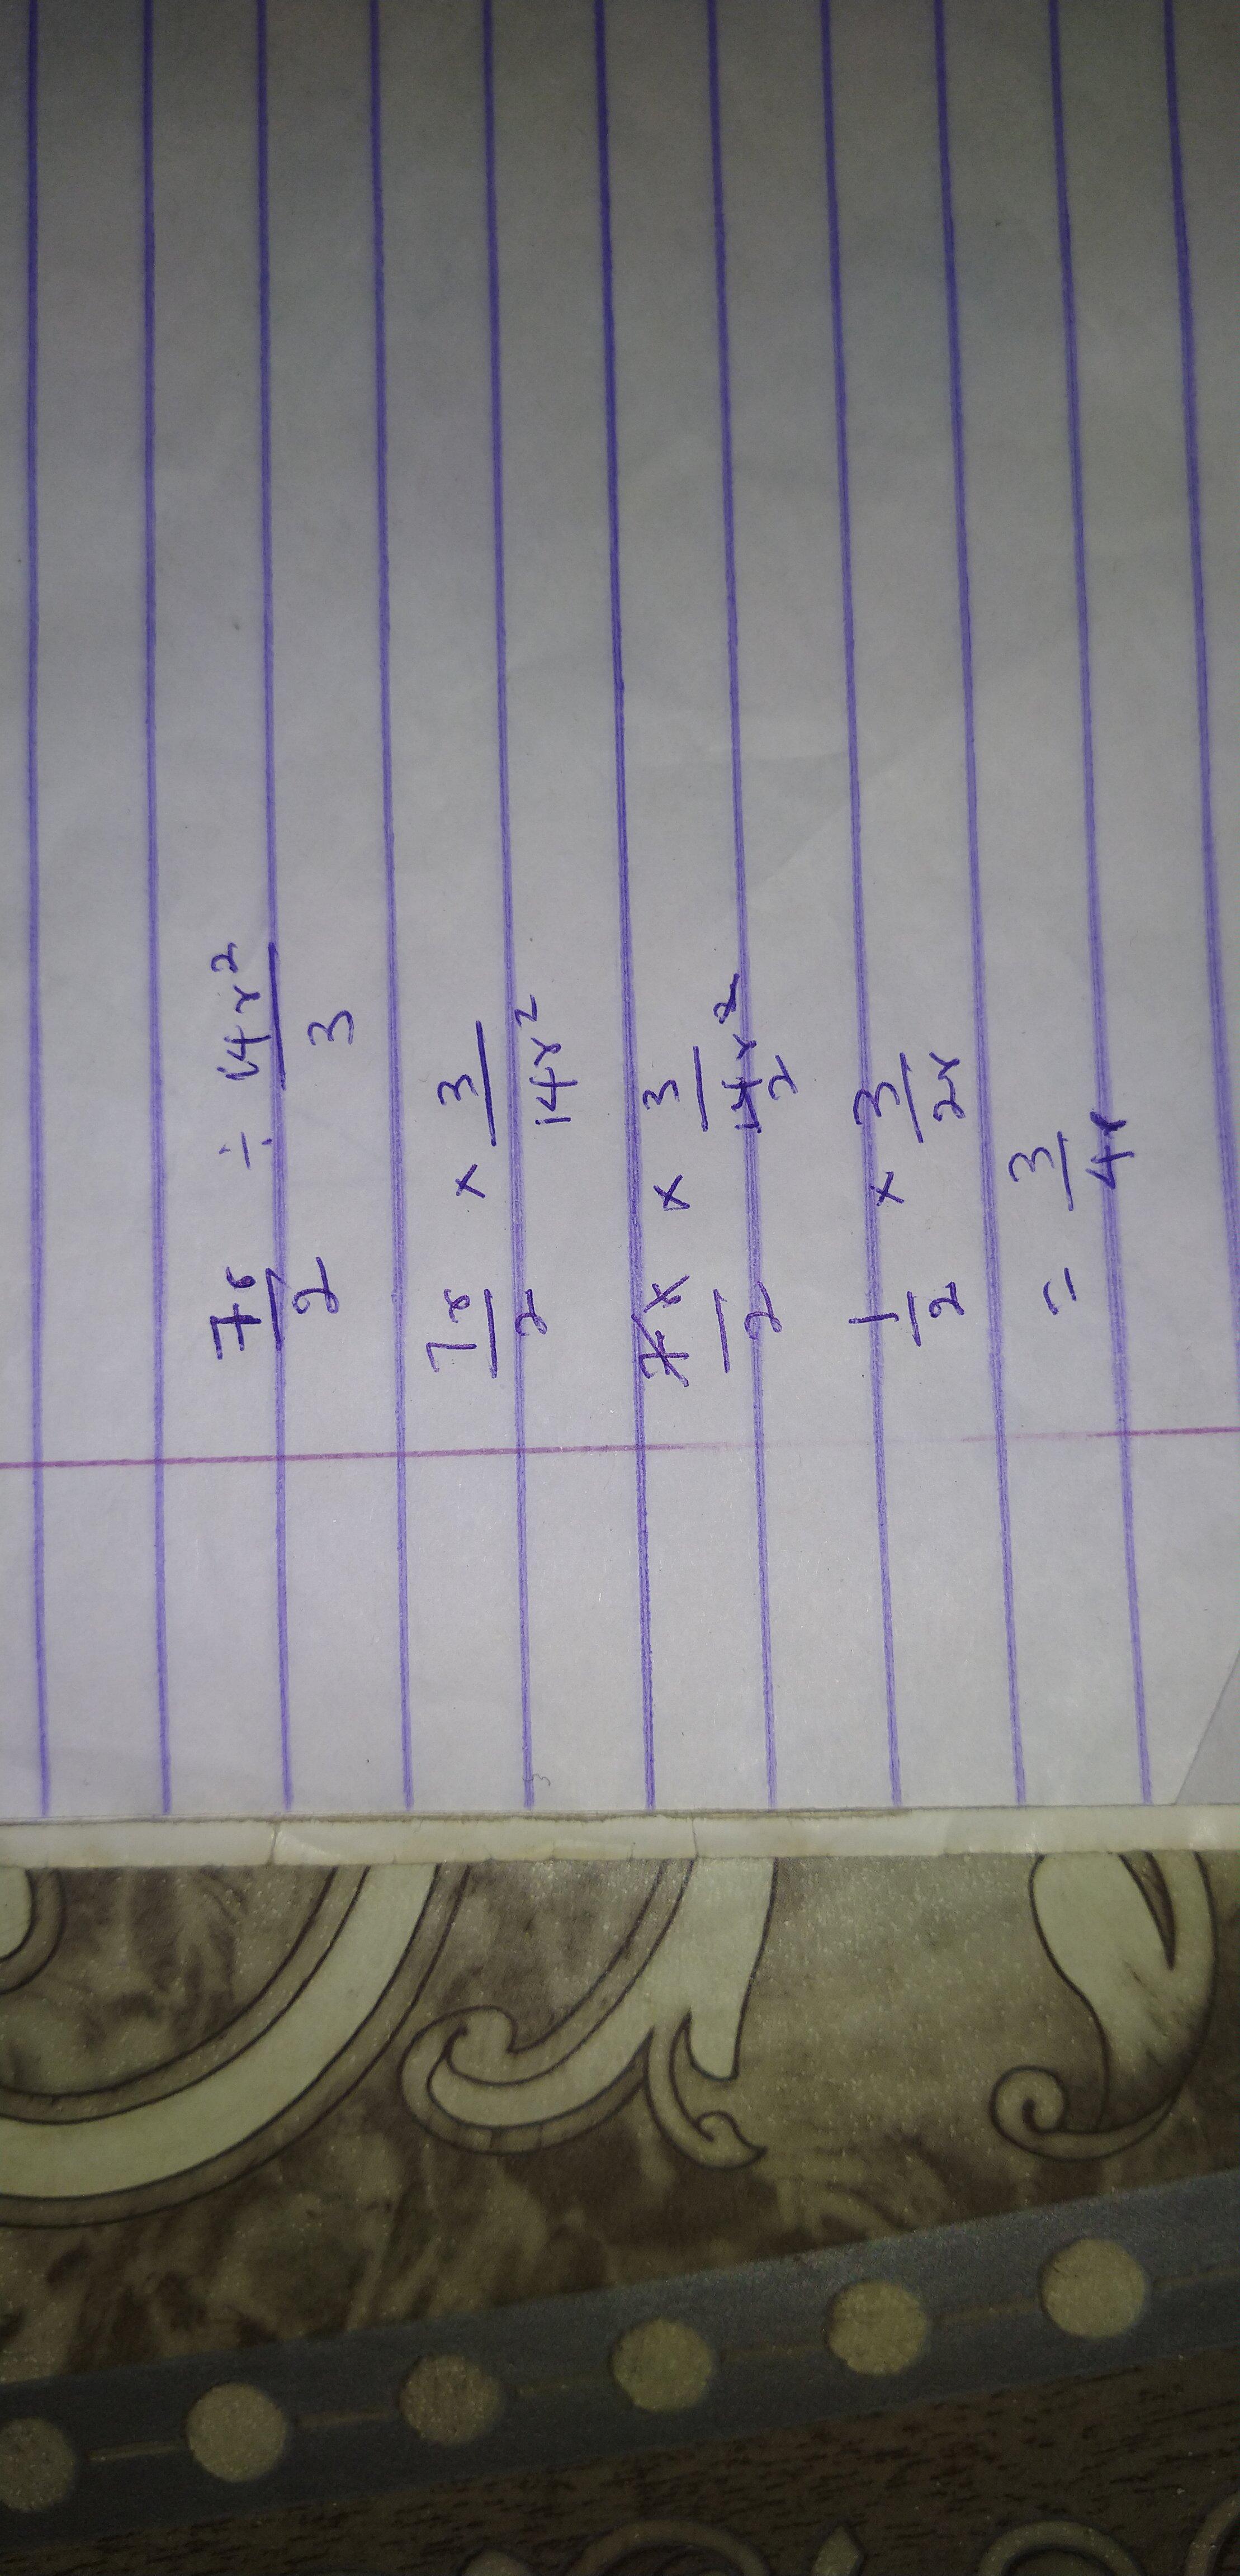 7x/2 ÷ 14x²/3
7x/2 × 3/14x²
7x/2 × 3/14x² 2
1/2 × 3/2x
= 3/4x